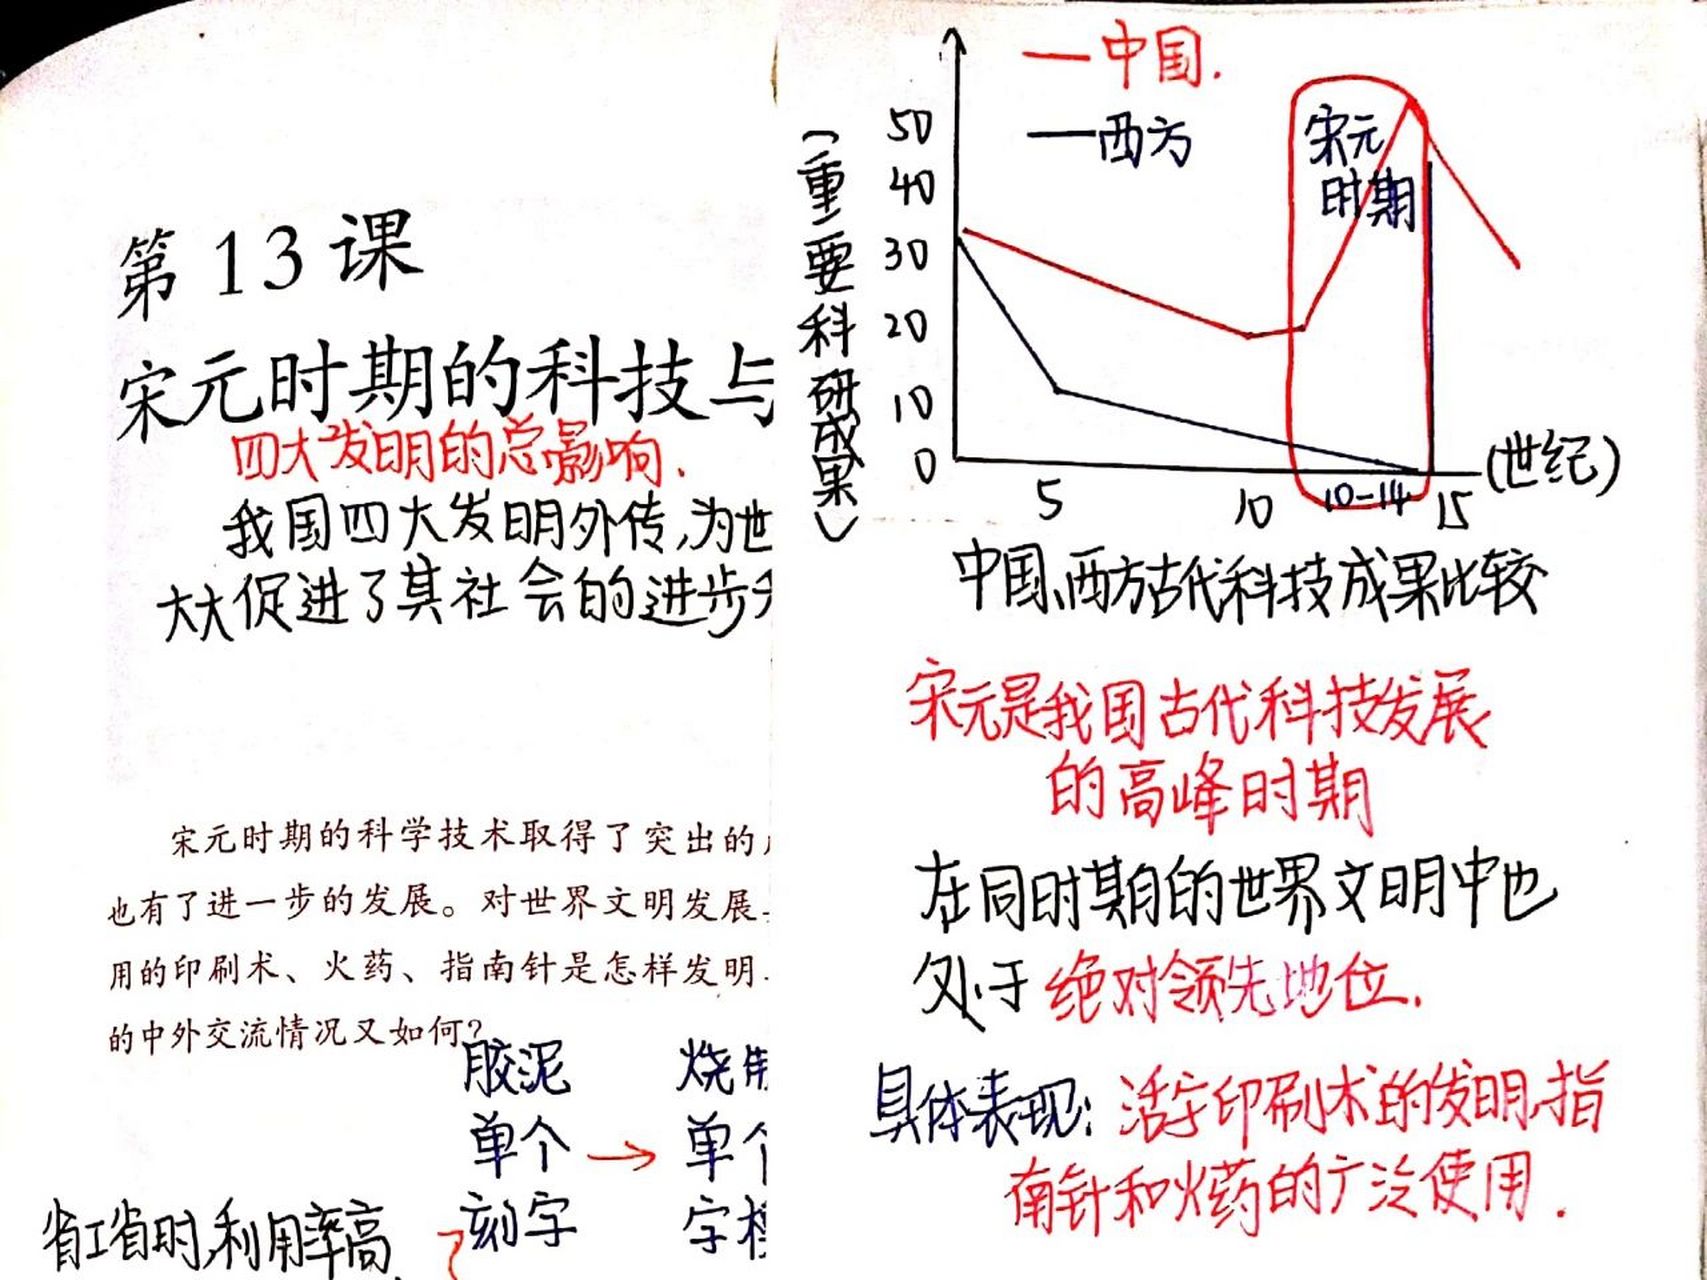 第13课
宋元时期的科技与
四大发明的总影响.
我国四大发明外传,为世
大大促进了其社会的进步
宋元时期的科学技术取得了突出的
也有了进一步的发展。对世界文明发展
用的印刷术、火药、指南针是怎样发明
的中外交流情况又如何?
胶泥
单个
刻字
→
烧制
单个
字
省工省时,利用率高
—中国.
—西方
(重要科研成果)
50
40
30
20
10
0
宋元
时期
5 10 10-14 15 (世纪)
中国、西方古代科技成果比较
宋元是我国古代科技发展
的高峰时期
在同时期的世界文明中也
处于绝对领先地位.
具体表现:活字印刷术的发明,指
南针和火药的广泛使用.